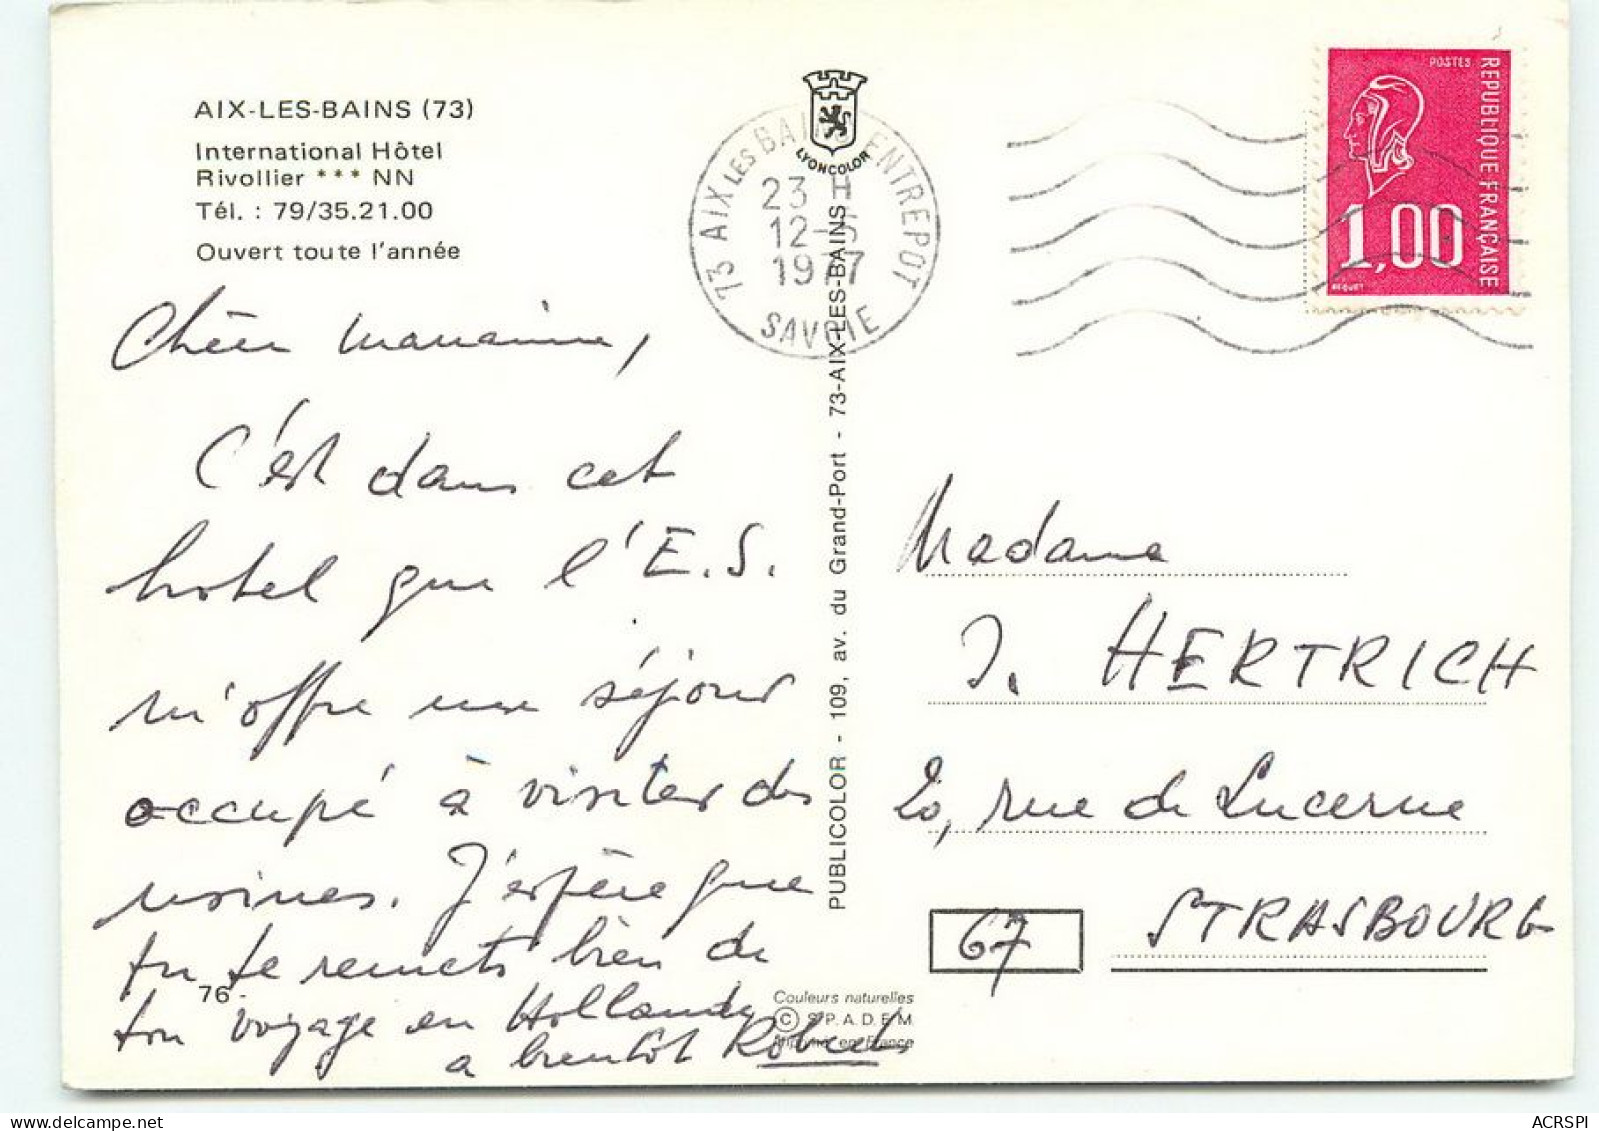 AIX-LES-BAINS (73)
International Hôtel
Rivollier *** NN
Tél. : 79/35.21.00
Ouvert toute l'année
Chère marraine,
C'est dans cet
hotel que l'E.S.
m'offre un séjour
occupé à visiter des
usines. J'espère que
tu te remets bien de
ton voyage en Hollande
a bientôt Robert
76
LYONCOLOR
73 AIX LES BAINS ENTREPOT
23 H
12-5
1977
SAVOIE
PUBLICOLOR - 109, av. du Grand-Port - 73-AIX-LES-BAINS
Couleurs naturelles
© S.P.A.D.E.M.
Imprimé en France
POSTES
REPUBLIQUE FRANÇAISE
1,00
BEQUET
Madame
J. HERTRICH
20, rue de Lucerne
67 STRASBOURG
ACRSPI